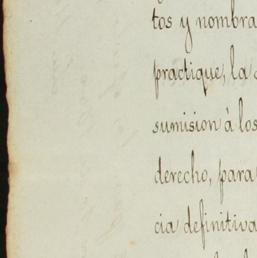 tos y nombra
practique, la
sumision á los
derecho, para
cia definitiva